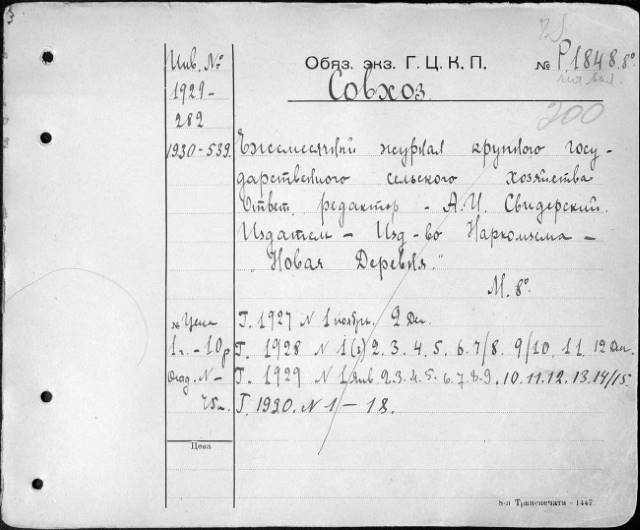 Инв. №
1929-
282
1930-539.
Обяз. экз. Г. Ц. К. П.
№ Р.1848. 8°
Совхоз
200
Ежемесячный журнал крупного госу-
дарственного сельского хозяйства
Ответ. редактор - А.И. Свидерский.
Издатель - Изд-во Наркомзема -
"Новая Деревня."
М. 8°
№ Цена
1 г. - 10 р
Отд. N -
75 к.
Г. 1927 N 1 ноябрь. 2 Дек.
Г. 1928 N 1(3) 2. 3. 4. 5. 6. 7/8. 9/10. 11. 12 Дек.
Г. 1929 N 1 янв. 2. 3. 4. 5. 6. 7. 8. 9. 10. 11. 12. 13. 14/15
Г. 1930. N 1 - 18.
Цена
8-я Транспечати - 1447